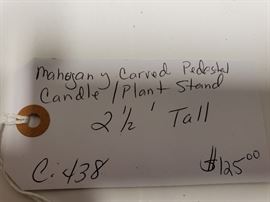 Mahogany Carved Pedestal
Candle/Plant Stand
2 1/2' Tall
C: 438
$125.00